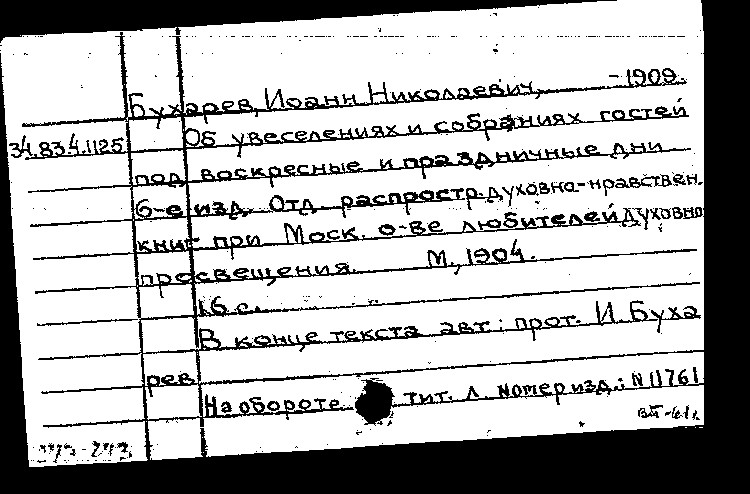 Бухарев, Иоанн Николаевич, -1909.
34.834.1125 Об увеселениях и собраниях гостей
под воскресные и праздничные дни
6-е изд. Отд. распростр. духовно-нравствен.
книг при Моск. о-ве любителей духовно
просвещения. М., 1904.
16 с.
В конце текста авт: прот. И. Буха
рев
На обороте тит. л. номер изд.: N 11761